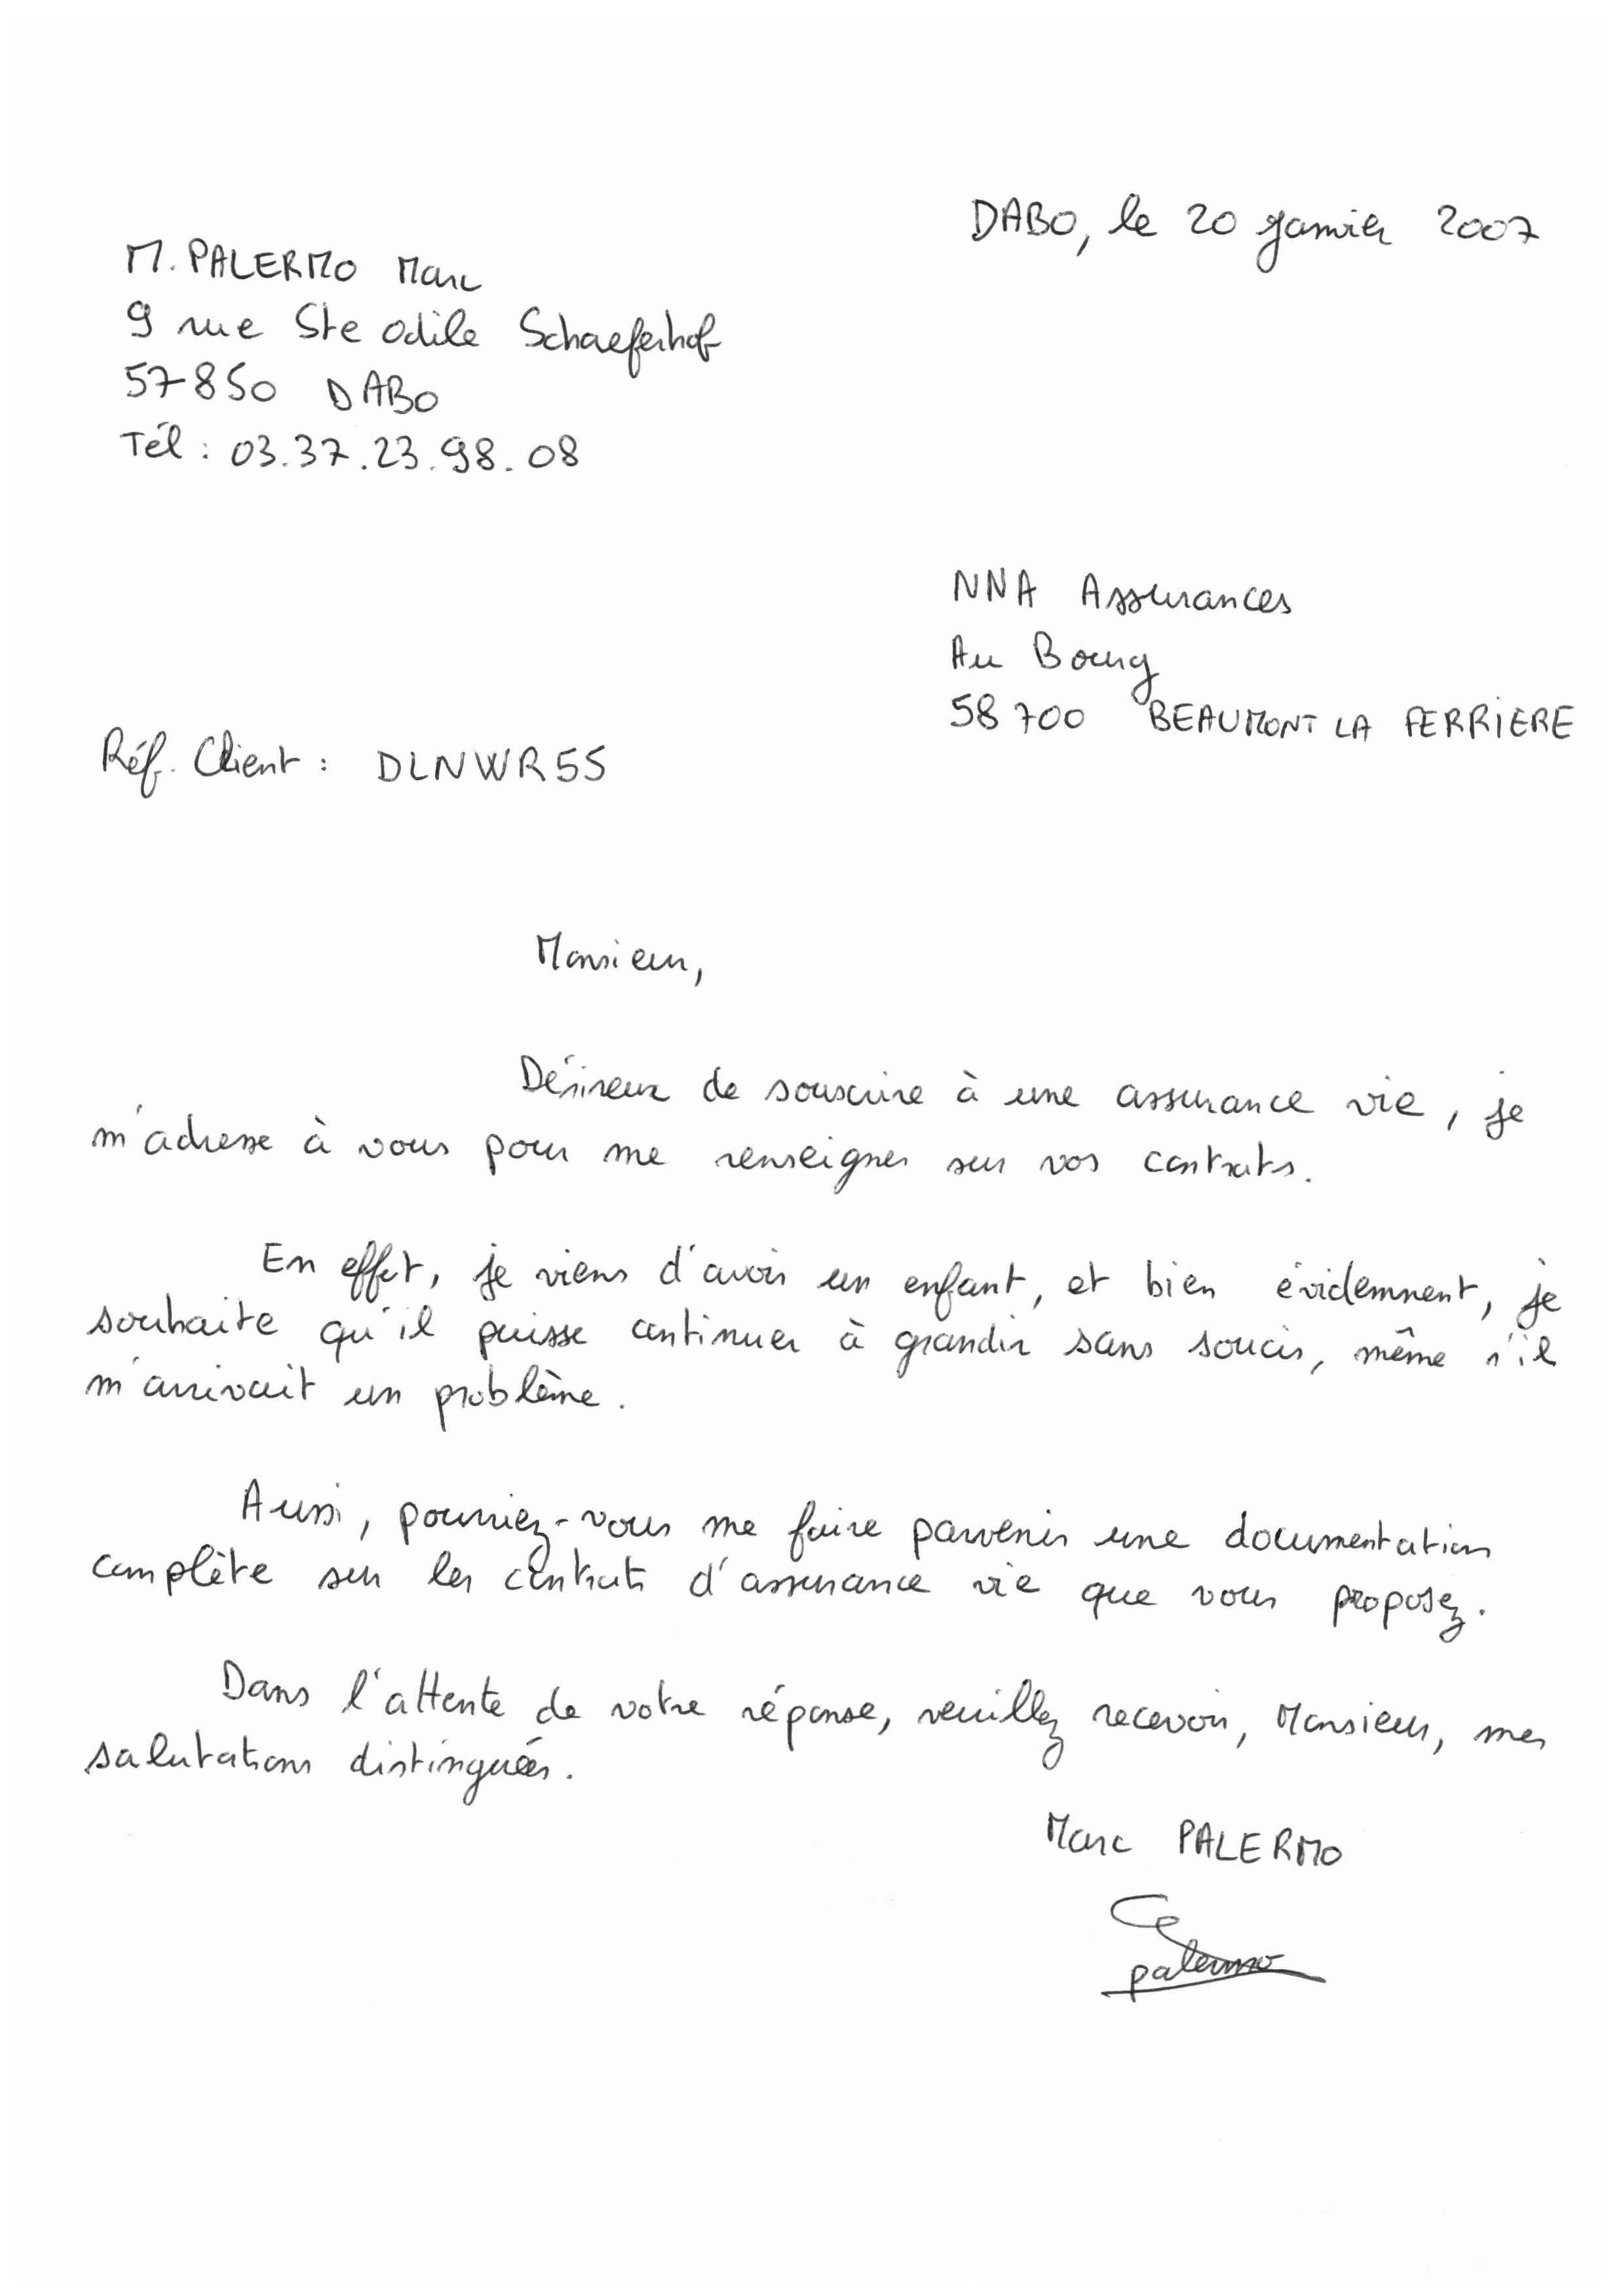 DABO, le 20 janvier 2007
M. PALERMO Marc
9 rue Ste Odile Schaeferhof
57850 DABO
Tél : 03.37.23.98.08
NNA Assurances
Au Bourg
58700 BEAUMONT LA FERRIERE
Réf. Client : DLNWR55
Monsieur,
Désireux de souscrire à une assurance vie, je
m'adresse à vous pour me renseigner sur vos contrats.
En effet, je viens d'avoir un enfant, et bien évidemment, je
souhaite qu'il puisse continuer à grandir sans soucis, même s'il
m'arrivait un problème.
Aussi, pourriez-vous me faire parvenir une documentation
complète sur les contrats d'assurance vie que vous proposez.
Dans l'attente de votre réponse, veuillez recevoir, Monsieur, mes
salutations distinguées.
Marc PALERMO
palermo